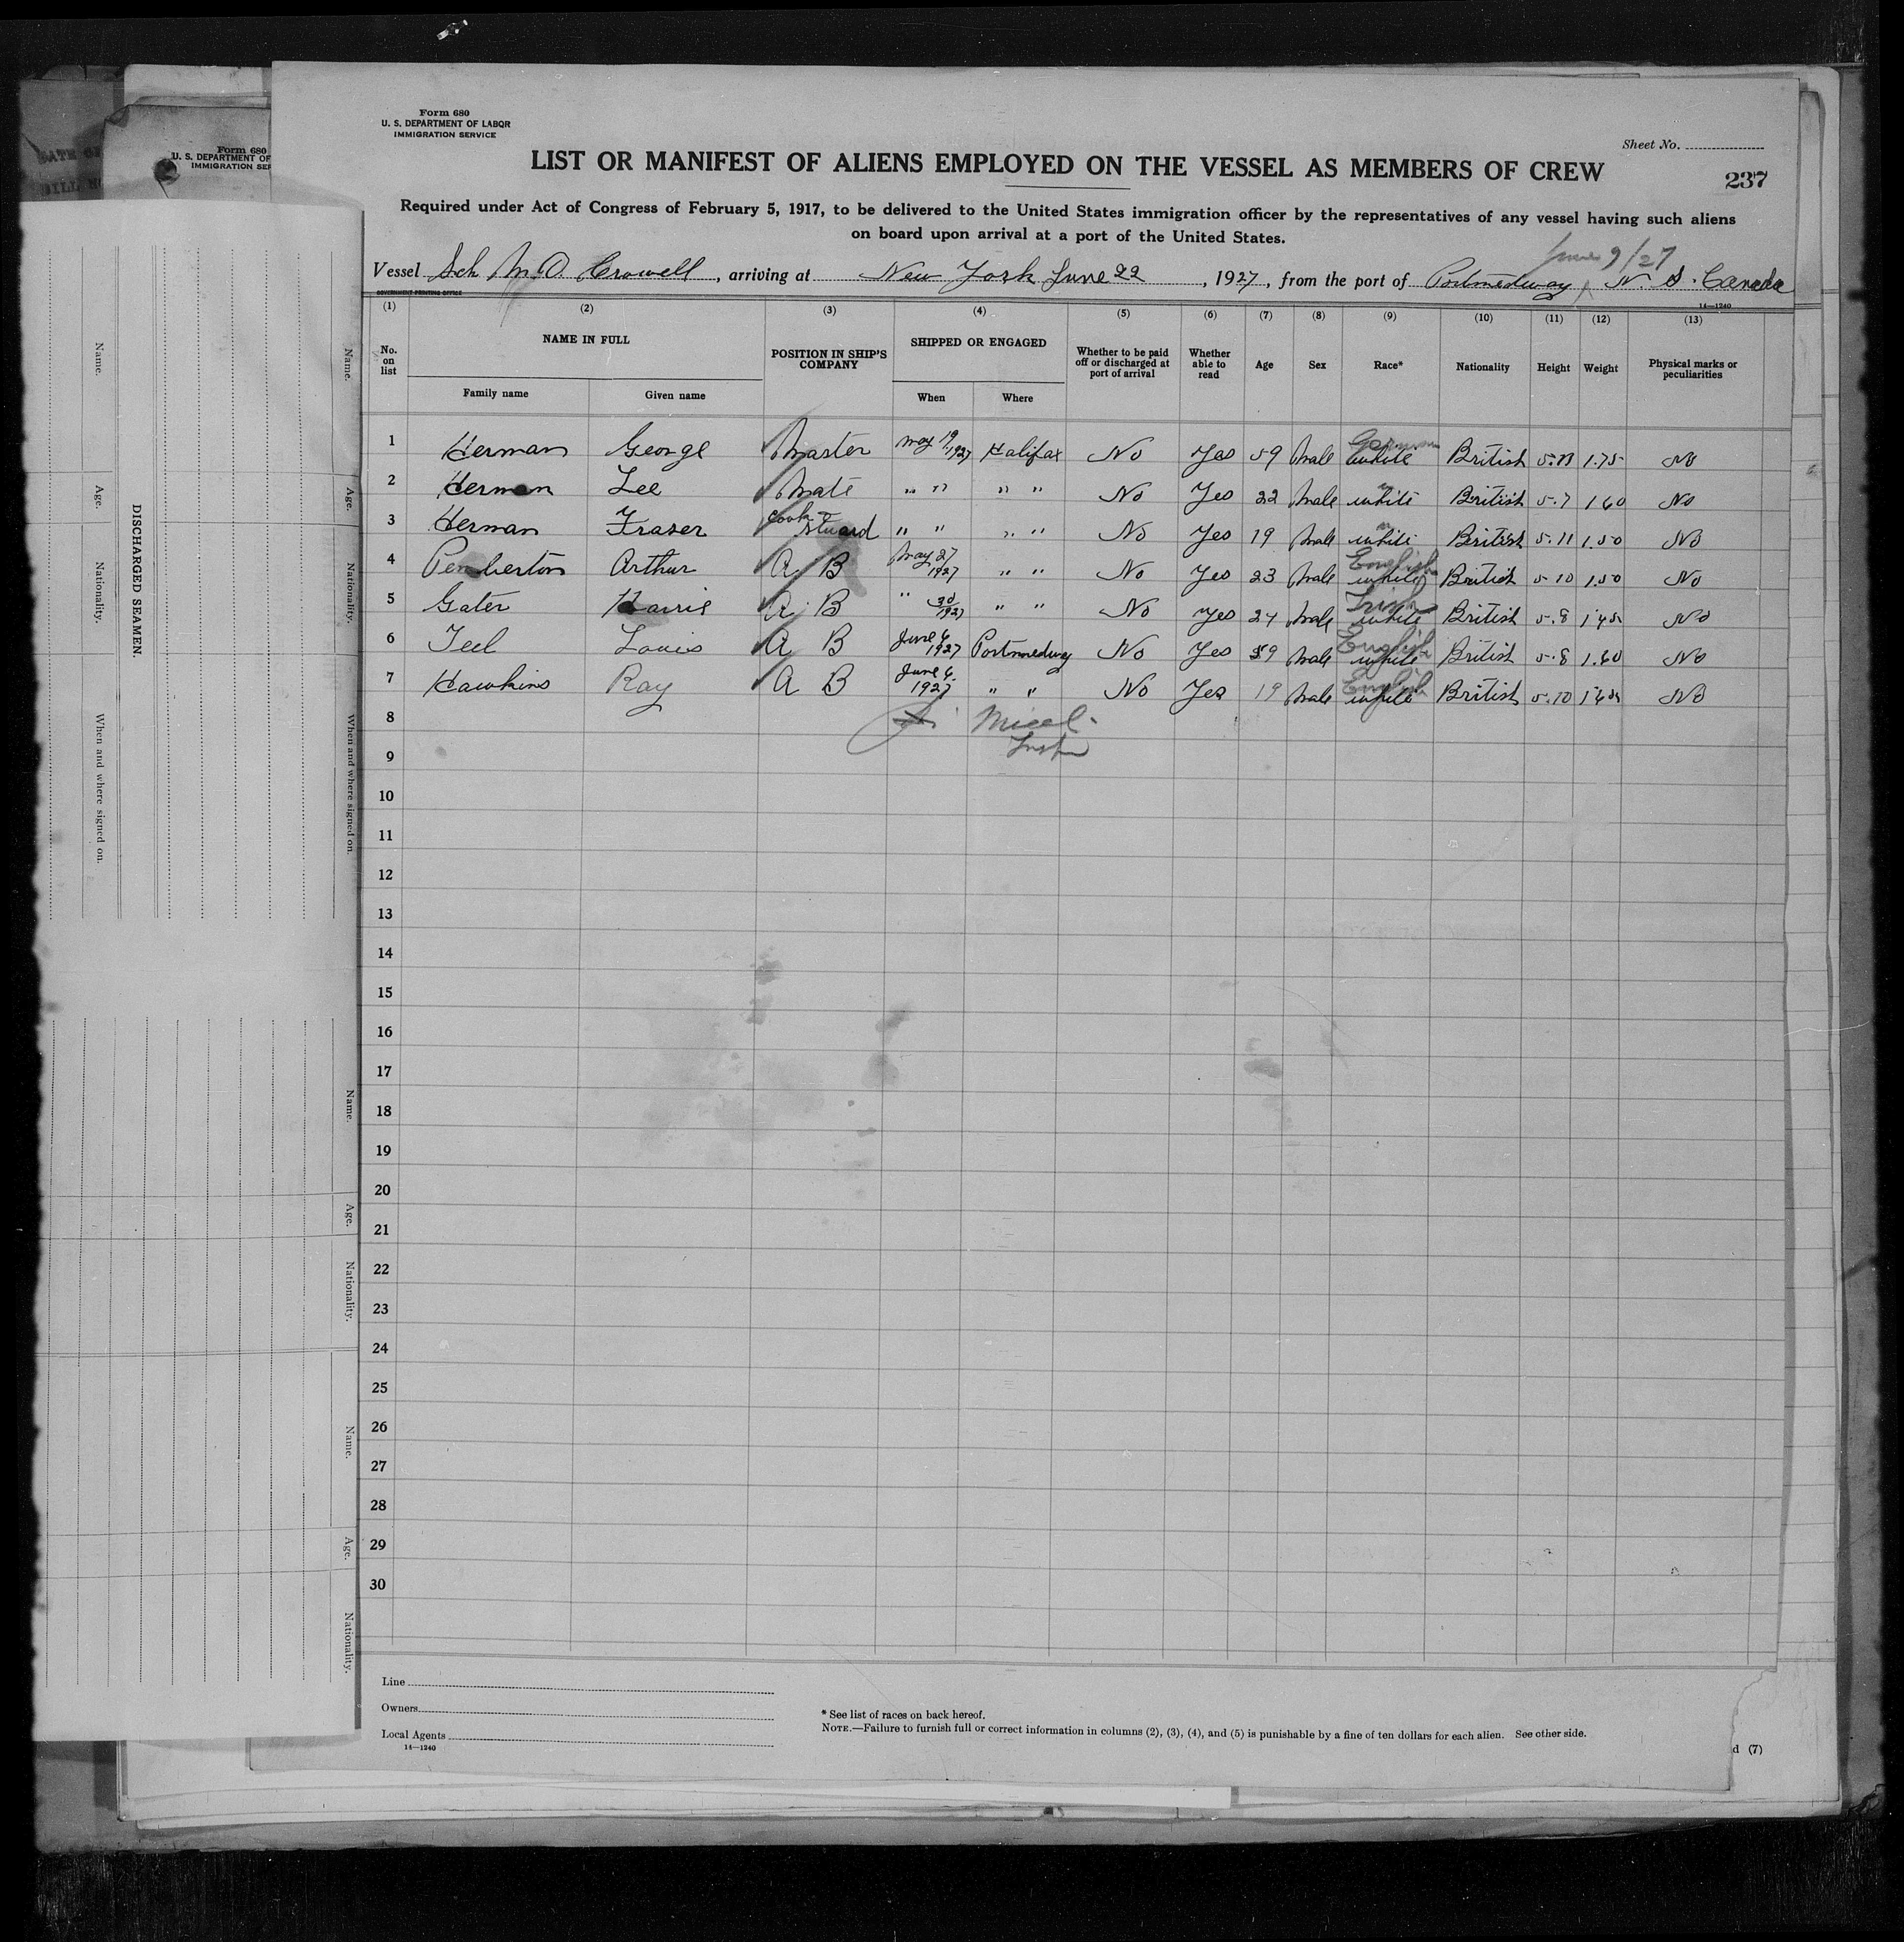 Form 680
U. S. DEPARTMENT OF LABOR
IMMIGRATION SERVICE
Form 680
U. S. DEPARTMENT OF
IMMIGRATION SER
Sheet No.
LIST OR MANIFEST OF ALIENS EMPLOYED ON THE VESSEL AS MEMBERS OF CREW
237
Required under Act of Congress of February 5, 1917, to be delivered to the United States immigration officer by the representatives of any vessel having such aliens
on board upon arrival at a port of the United States.
June 9/27
Vessel Sch M.A. Crowell, arriving at New York June 22, 1927, from the port of Portmedway, N. S. Canada
GOVERNMENT PRINTING OFFICE
14—1240
(1) (2) (3) (4) (5) (6) (7) (8) (9) (10) (11) (12) (13)
No. on list NAME IN FULL POSITION IN SHIP'S COMPANY SHIPPED OR ENGAGED Whether to be paid off or discharged at port of arrival Whether able to read Age Sex Race* Nationality Height Weight Physical marks or peculiarities
Family name Given name When Where
1 Herman George Master May 19 1927 Halifax No Yes 59 Male German white British 5.11 1.75 No
2 Herman Lee Mate " " " " No Yes 22 Male " white British 5.7 160 No
3 Herman Frazer Cook & Stuard " " " " No Yes 19 Male " white British 5.11 1.50 No
4 Pemberton Arthur A B May 27 1927 " " No Yes 23 Male English white British 5 10 1.50 No
5 Gater Harris A B " 30 1927 " " No Yes 24 Male Irish white British 5.8 145 No
6 Teel Louis A B June 6 1927 Portmedway No Yes 39 Male English white British 5.8 1.60 No
7 Hawkins Ray A B June 6. 1927 " " No Yes 19 Male English white British 5.10 165 No
8
Insp
9
10
11
12
13
14
15
16
17
18
19
20
21
22
23
24
25
26
27
28
29
30
Line
Owners
Local Agents
14—1240
* See list of races on back hereof.
NOTE.—Failure to furnish full or correct information in columns (2), (3), (4), and (5) is punishable by a fine of ten dollars for each alien. See other side.
d (7)
DISCHARGED SEAMEN.
Name.
Age.
Nationality.
When and where signed on.
Name.
Age.
Nationality.
When and where signed on.
Name.
Age.
Nationality.
Name.
Age.
Nationality.